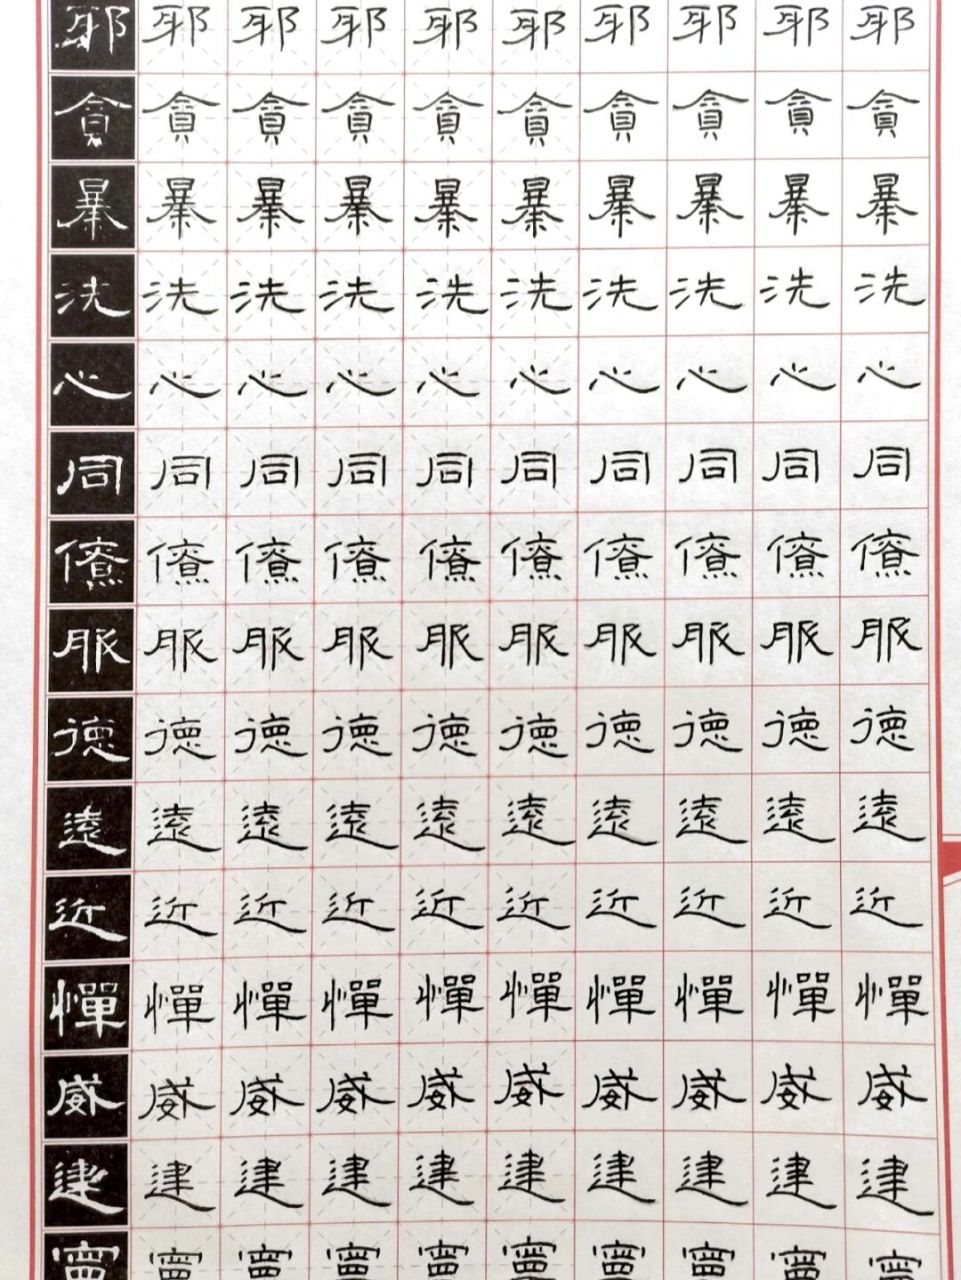 邪邪邪邪邪邪邪邪邪邪
貪貪貪貪貪貪貪貪貪貪
暴暴暴暴暴暴暴暴暴暴
洗洗洗洗洗洗洗洗洗洗
心心心心心心心心心心
同同同同同同同同同同
僚僚僚僚僚僚僚僚僚僚
服服服服服服服服服服
德德德德德德德德德德
遠遠遠遠遠遠遠遠遠遠
近近近近近近近近近近
憚憚憚憚憚憚憚憚憚憚
威威威威威威威威威威
建建建建建建建建建建
寧寧寧寧寧寧寧寧寧寧